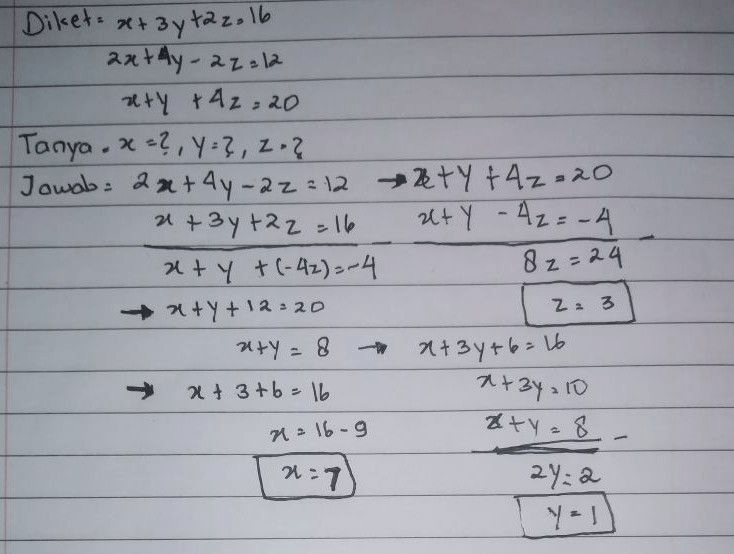 Diket = x+3y+2z=16
2x+4y-2z=12
x+y+4z=20
Tanya. x=?, y=?, z=?
Jawab = 2x+4y-2z=12 → x+y+4z=20
x+3y+2z=16 x+y-4z=-4
x+y+(-4z)=-4 8z=24
→ x+y+12=20 z=3
x+y=8 → x+3y+6=16
→ x+3+6=16 x+3y=10
x=16-9 x+y=8
x=7 2y=2
y=1